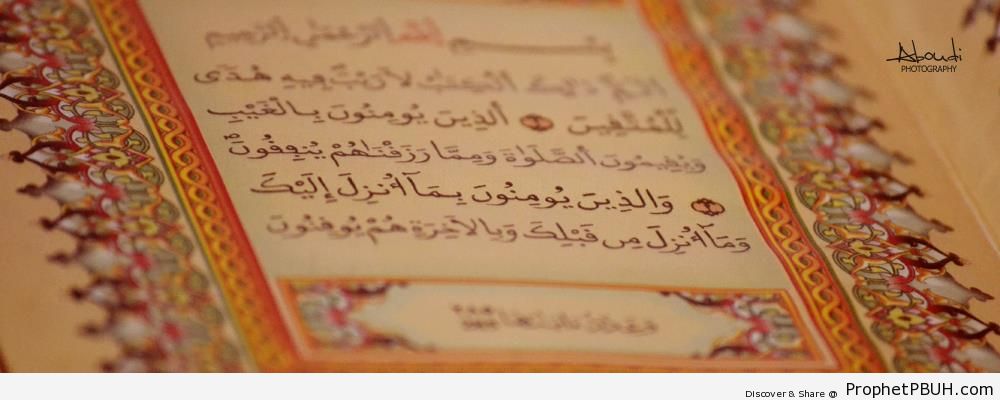 Aboudi
PHOTOGRAPHY
بِسْمِ اللَّهِ الرَّحْمَٰنِ الرَّحِيمِ
أَلَمِّ ذَٰلِكَ الْكِتَٰبُ لَا رَيْبَ فِيهِ هُدًى
لِّلْمُتَّقِينَ ۝ الَّذِينَ يُومِنُونَ بِالْغَيْبِ
وَيُقِيمُونَ الصَّلَوٰةَ وَمِمَّا رَزَقْنَٰهُمْ يُنفِقُونَ
۝ وَالَّذِينَ يُومِنُونَ بِمَآ أُنزِلَ إِلَيْكَ
وَمَآ أُنزِلَ مِن قَبْلِكَ وَبِالَاخِرَةِ هُمْ يُوقِنُونَ
Discover & Share @ ProphetPBUH.com